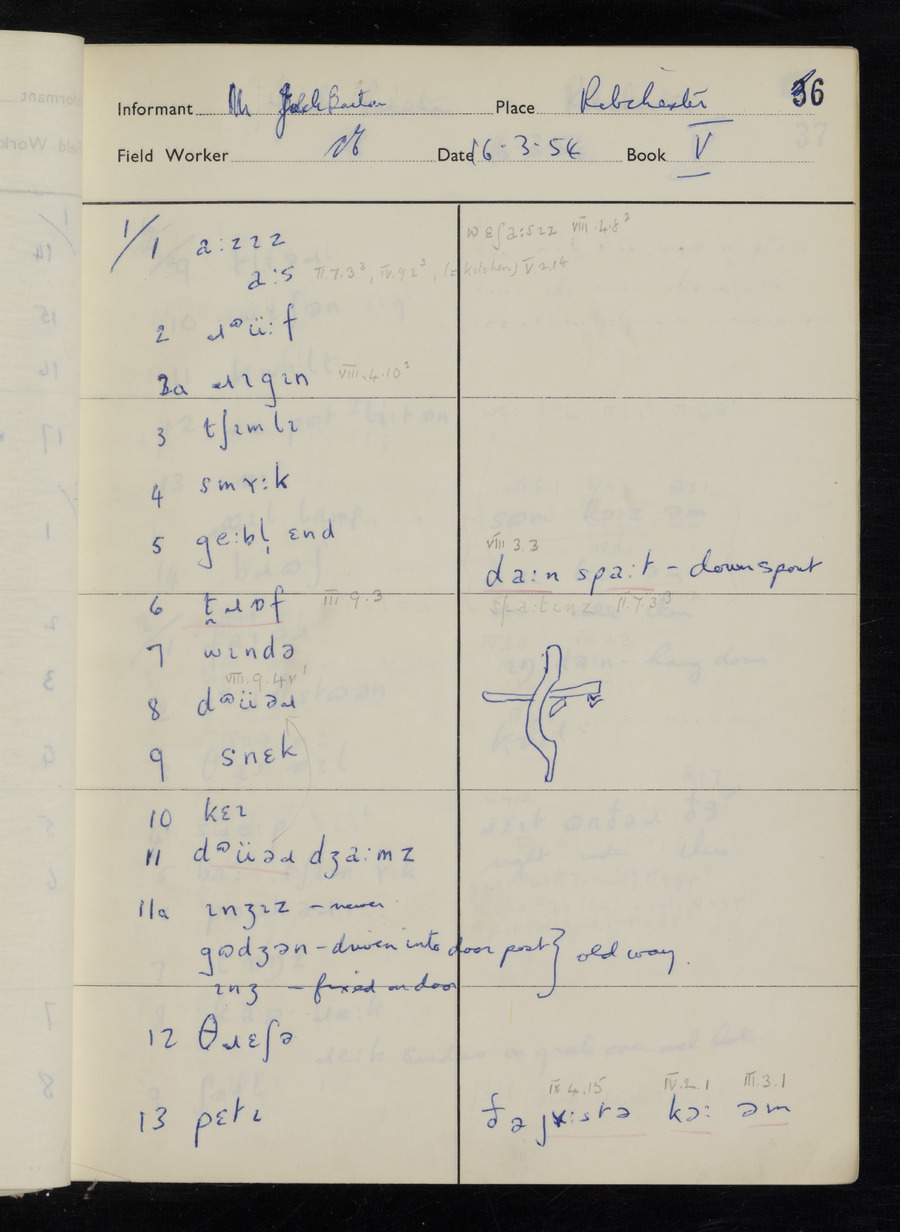 36
Informant Mr Barton Place Ribchester
Field Worker Date 16·3·54 Book V
1/1 a:zɪz
wəʃa:sɪz VIII·4·8²
a:s II.7.3³, IV.9.2³, (= kitchen) V.2.14
2 ɹᵊü:f
2a ɹɪgɪn VIII.4.10²
3 tʃɪmlɪ
4 smɤ:k
5 ge:bl̩ ɛnd
VIII 3.3
da:n spa:t – downspout
6 t̪ɹɒf III·9·3
spa:tɪnz II.7.3
7 wɪndə
VIII.9.4
8 dᵊüəɹ
9 snɛk
10 kɛɪ
11 dᵊüəɹ dʒa:mz
11a ɪnʒɪz – newer
gɵdʒən – driven into door post } old way.
ɪnʒ – fixed on door
12 θɹɛʃə
IX 4.15 IV.2.1 III.3.1
13 pɛtɪ
ðə jɤ:stə kɔ: əm